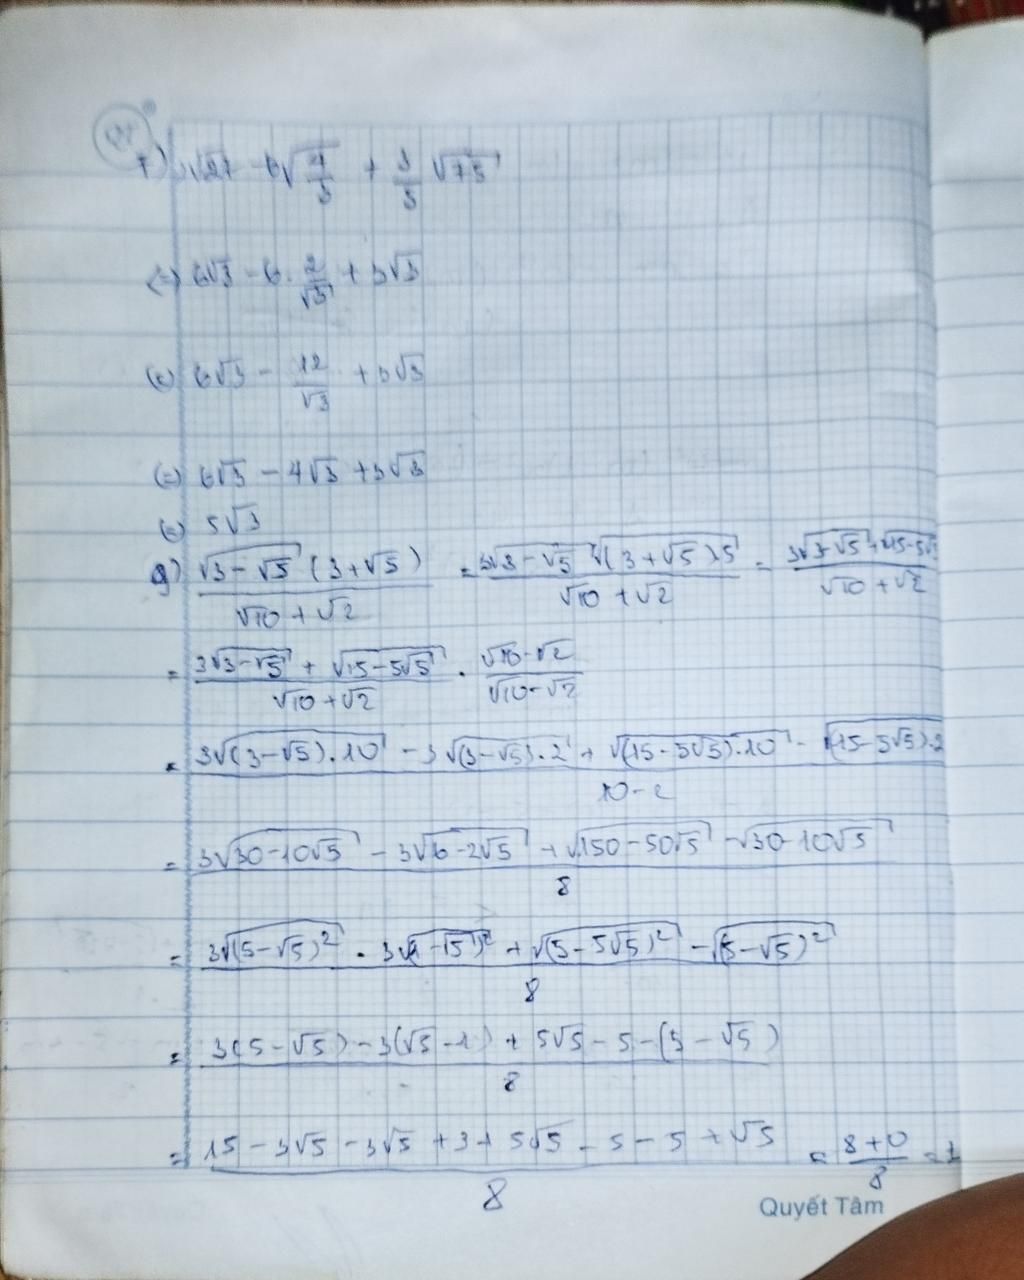 f) √27 - 6√(4/3) + 3/5 √75
(=) 6√3 - 6 · 2/√3 + 3√3
(=) 6√3 - 12/√3 + 3√3
(=) 6√3 - 4√3 + 3√3
(=) 5√3
g) √(3-√5) (3+√5) / (√10+√2) = (3√(3-√5) √(3+√5).5) / (√10+√2) = (3√(3-√5) + √(15-5√5)) / (√10+√2)
= (3√(3-√5) + √(15-5√5)) / (√10+√2) · (√10-√2) / (√10-√2)
= (3√((3-√5).10) - 3√((3-√5).2) + √((15-5√5).10) - √((15-5√5).2)) / (10-2)
= (3√(30-10√5) - 3√(6-2√5) + √(150-50√5) - √(30-10√5)) / 8
= (3√(5-√5)² - 3√(1-√5)² + √(5-5√5)² - √(5-√5)²) / 8
= (3(5-√5) - 3(√5-1) + 5√5 - 5 - (5-√5)) / 8
= (15 - 3√5 - 3√5 + 3 + 5√5 - 5 - 5 + √5) / 8 = (8+0) / 8 = 1
Quyết Tâm